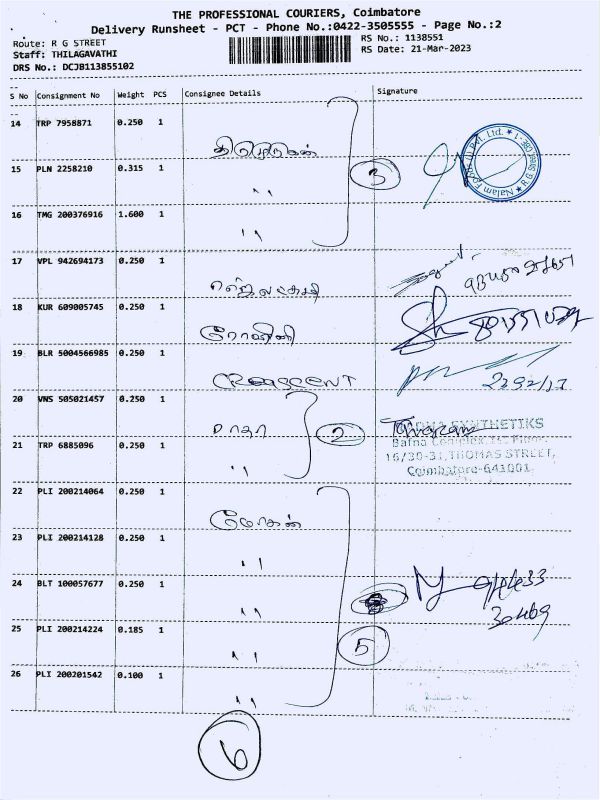 THE PROFESSIONAL COURIERS, Coimbatore
Delivery Runsheet - PCT - Phone No.:0422-3505555 - Page No.:2
Route: R G STREET
RS No.: 1138551
Staff: THILAGAVATHI
RS Date: 21-Mar-2023
DRS No.: DCJB113855102
S No Consignment No Weight PCS Consignee Details Signature
14 TRP 7958871 0.250 1
15 PLN 2258210 0.315 1 "
3
16 TMG 200376916 1.600 1 "
17 VPL 942694173 0.250 1
18 KUR 609005745 0.250 1 ரோஹிணி
19 BLR 5004566985 0.250 1 CREASCENT
20 VNS 505021457 0.250 1 டாதா
2
SYNTHETIKS
21 TRP 6885096 0.250 1 "
16/30-31, THOMAS STREET,
Coimbatore-641001
22 PLI 200214064 0.250 1 மோகன்
23 PLI 200214128 0.250 1 "
24 BLT 100057677 0.250 1 "
25 PLI 200214224 0.185 1 "
5
26 PLI 200201542 0.100 1 "
6